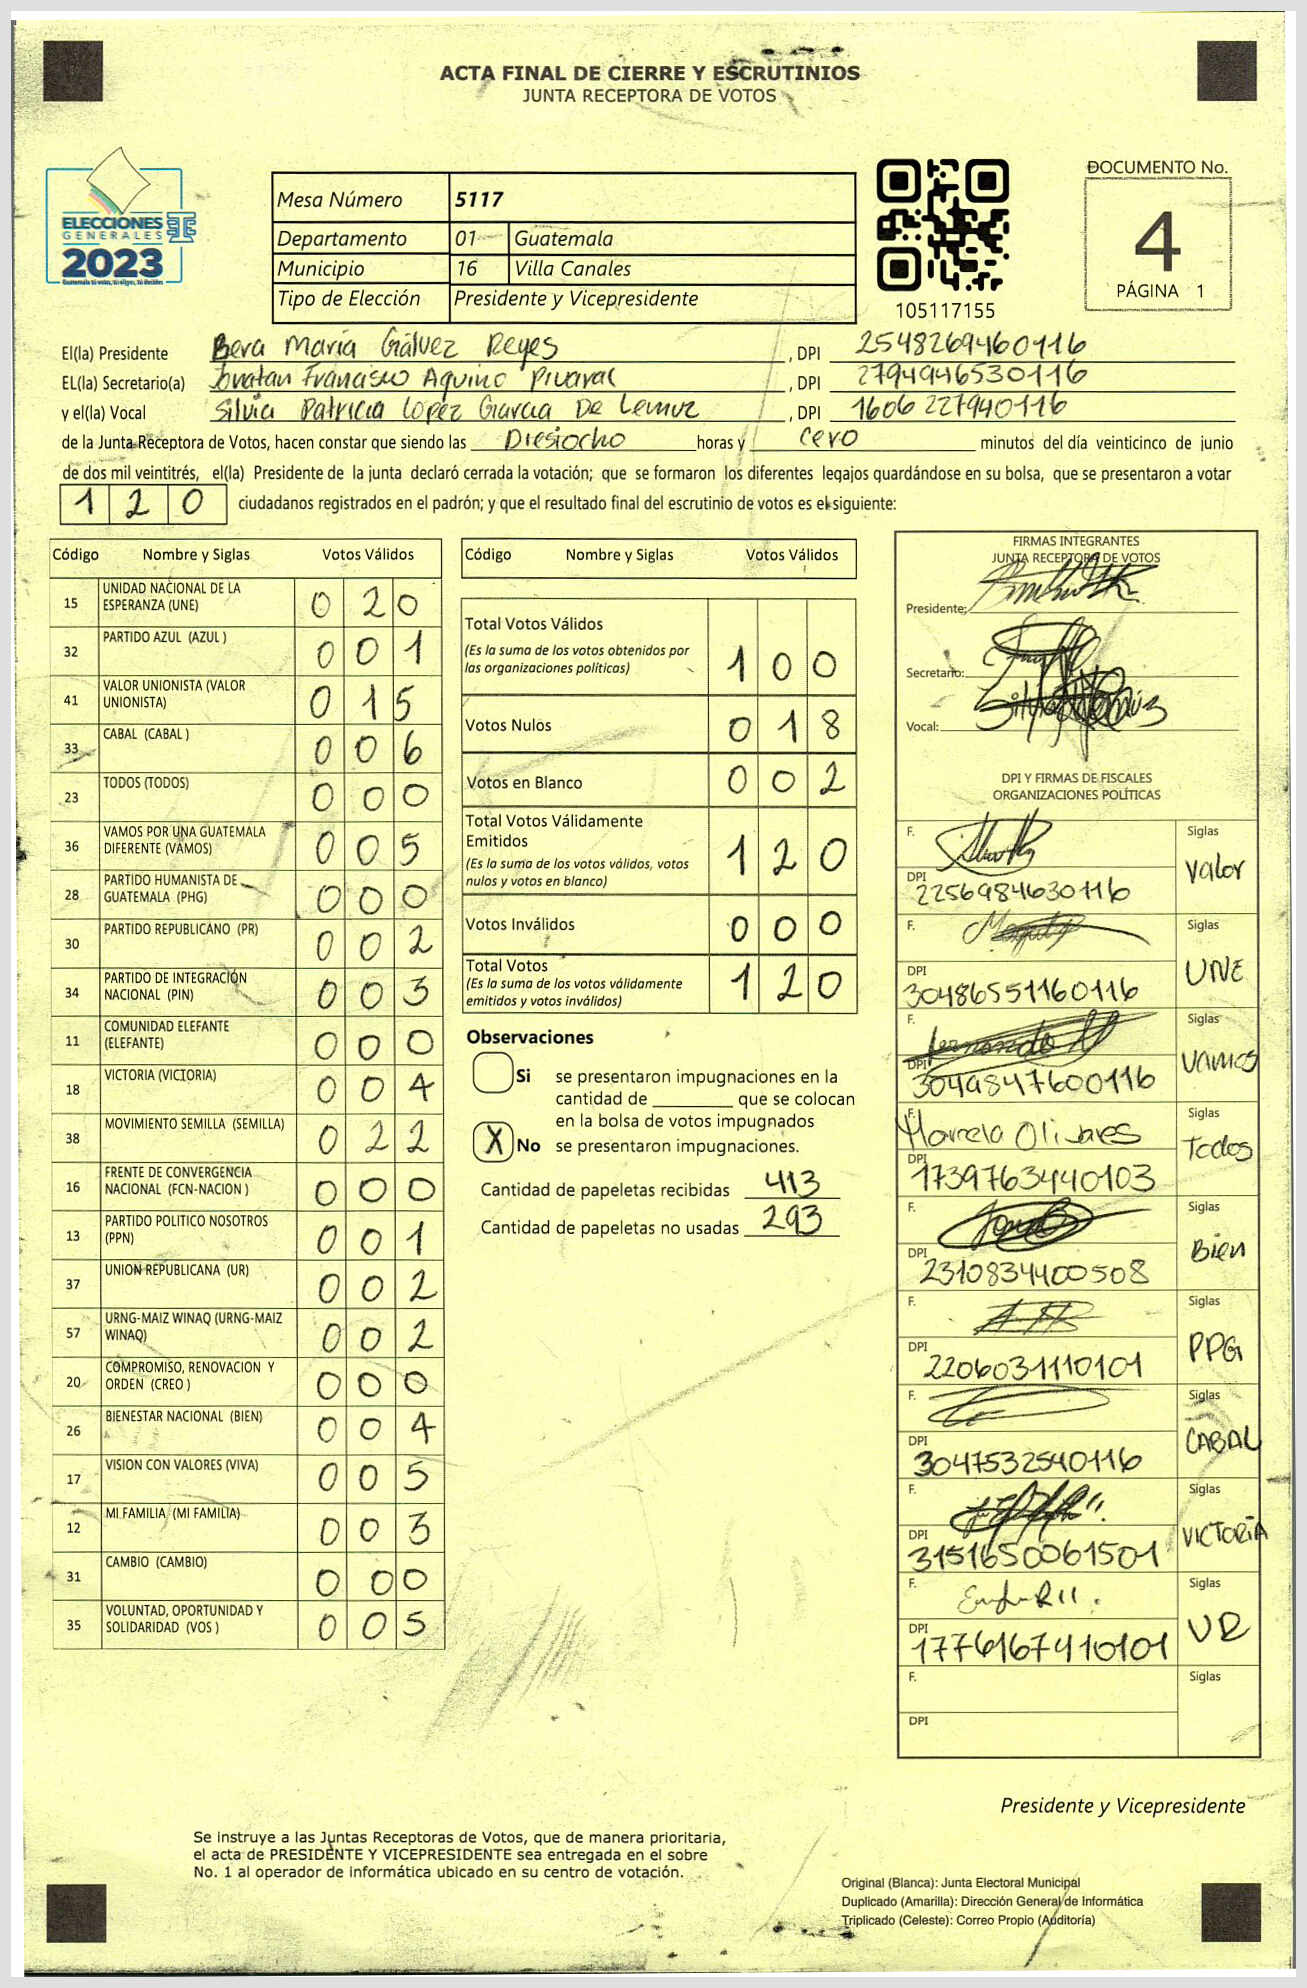 ACTA FINAL DE CIERRE Y ESCRUTINIOS
JUNTA RECEPTORA DE VOTOS
ELECCIONES
GENERALES
2023
Mesa Número 5117
Departamento 01 Guatemala
Municipio 16 Villa Canales
Tipo de Elección Presidente y Vicepresidente
105117155
DOCUMENTO No.
4
PÁGINA 1
El(la) Presidente Bera María Gálvez Reyes , DPI 2548269460116
EL(la) Secretario(a) Jonatan Francisco Aquino Pivaral , DPI 2794946530116
y el(la) Vocal Silvia Patricia López Garcia De Lemuz , DPI 1606 227940116
de la Junta Receptora de Votos, hacen constar que siendo las Diesiocho horas y cero minutos del día veinticinco de junio
de dos mil veintitrés, el(la) Presidente de la junta declaró cerrada la votación; que se formaron los diferentes legajos guardándose en su bolsa, que se presentaron a votar
1 2 0 ciudadanos registrados en el padrón; y que el resultado final del escrutinio de votos es el siguiente:
Código Nombre y Siglas Votos Válidos
15 UNIDAD NACIONAL DE LA ESPERANZA (UNE) 0 2 0
32 PARTIDO AZUL (AZUL ) 0 0 1
41 VALOR UNIONISTA (VALOR UNIONISTA) 0 1 5
33 CABAL (CABAL ) 0 0 6
23 TODOS (TODOS) 0 0 0
36 VAMOS POR UNA GUATEMALA DIFERENTE (VAMOS) 0 0 5
28 PARTIDO HUMANISTA DE GUATEMALA (PHG) 0 0 0
30 PARTIDO REPUBLICANO (PR) 0 0 2
34 PARTIDO DE INTEGRACIÓN NACIONAL (PIN) 0 0 3
11 COMUNIDAD ELEFANTE (ELEFANTE) 0 0 0
18 VICTORIA (VICTORIA) 0 0 4
38 MOVIMIENTO SEMILLA (SEMILLA) 0 2 2
16 FRENTE DE CONVERGENCIA NACIONAL (FCN-NACION ) 0 0 0
13 PARTIDO POLITICO NOSOTROS (PPN) 0 0 1
37 UNION REPUBLICANA (UR) 0 0 2
57 URNG-MAIZ WINAQ (URNG-MAIZ WINAQ) 0 0 2
20 COMPROMISO, RENOVACION Y ORDEN (CREO ) 0 0 0
26 BIENESTAR NACIONAL (BIEN) 0 0 4
17 VISION CON VALORES (VIVA) 0 0 5
12 MI FAMILIA (MI FAMILIA) 0 0 3
31 CAMBIO (CAMBIO) 0 0 0
35 VOLUNTAD, OPORTUNIDAD Y SOLIDARIDAD (VOS ) 0 0 5
Código Nombre y Siglas Votos Válidos
Total Votos Válidos
(Es la suma de los votos obtenidos por
las organizaciones políticas) 1 0 0
Votos Nulos 0 1 8
Votos en Blanco 0 0 2
Total Votos Válidamente
Emitidos
(Es la suma de los votos válidos, votos
nulos y votos en blanco) 1 2 0
Votos Inválidos 0 0 0
Total Votos
(Es la suma de los votos válidamente
emitidos y votos inválidos) 1 2 0
Observaciones
Si se presentaron impugnaciones en la
cantidad de ________ que se colocan
en la bolsa de votos impugnados
X No se presentaron impugnaciones.
Cantidad de papeletas recibidas 413
Cantidad de papeletas no usadas 293
FIRMAS INTEGRANTES
JUNTA RECEPTORA DE VOTOS
Presidente:
Secretario:
Vocal:
DPI Y FIRMAS DE FISCALES
ORGANIZACIONES POLÍTICAS
F. Siglas
DPI 2256984630116 Valor
F. Siglas
DPI 30486551160116 UNE
F. Siglas
DPI 3049847600116 VAMOS
F. Marcelo Olivares Siglas
DPI 1739763440103 Todos
F. Siglas
DPI 2310834400508 Bien
F. Siglas
DPI 2206031110101 PPG
F. Siglas
DPI 3047532540116 CABAL
F. Siglas
DPI 3151650061501 VICTORIA
F. Siglas
DPI 1776167410101 UR
F. Siglas
DPI
Presidente y Vicepresidente
Se instruye a las Juntas Receptoras de Votos, que de manera prioritaria,
el acta de PRESIDENTE Y VICEPRESIDENTE sea entregada en el sobre
No. 1 al operador de informática ubicado en su centro de votación.
Original (Blanca): Junta Electoral Municipal
Duplicado (Amarilla): Dirección General de Informática
Triplicado (Celeste): Correo Propio (Auditoría)